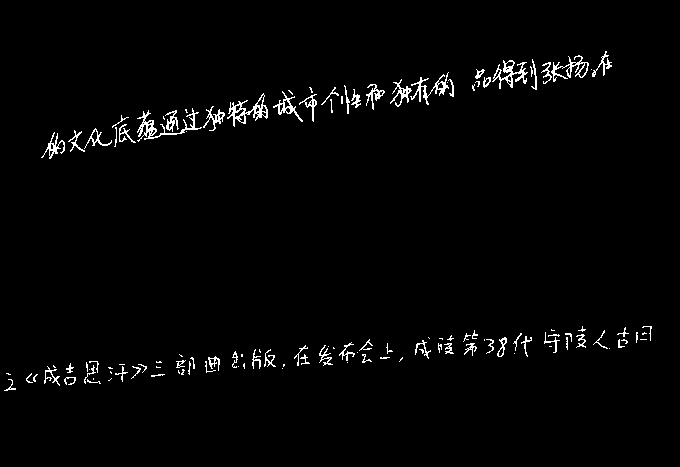 的文化底蕴通过独特的城市个性和独有的 品得到张扬。在
《成吉思汗》三部曲出版,在发布会上,成陵第38代守陵人古日